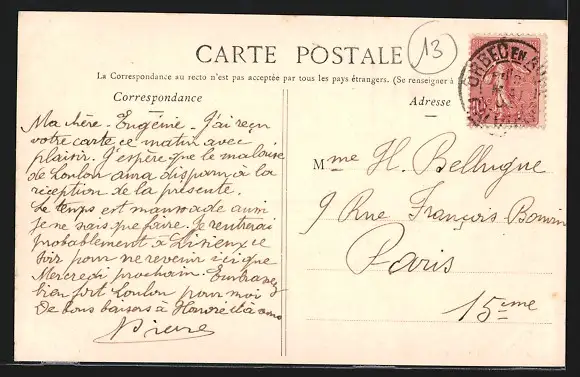 CARTE POSTALE
13
La Correspondance au recto n'est pas acceptée par tous les pays étrangers. (Se renseigner à
Correspondance
Adresse
ORBEC EN
Ma chère Eugénie – J'ai reçu
votre carte ce matin avec
plaisir. J'espère que le malaise
de Loulou aura disparu à la
réception de la présente.
Le temps est maussade aussi
je ne sais que faire. Je rentrerai
probablement à Lisieux ce
soir pour ne revenir ici que
Mercredi prochain. Embrassez
bien fort Loulou pour moi
De bons baisers à Honoré et à
Pierre
Mme H. Bellugue
9 Rue François Bonvin
Paris
15ème